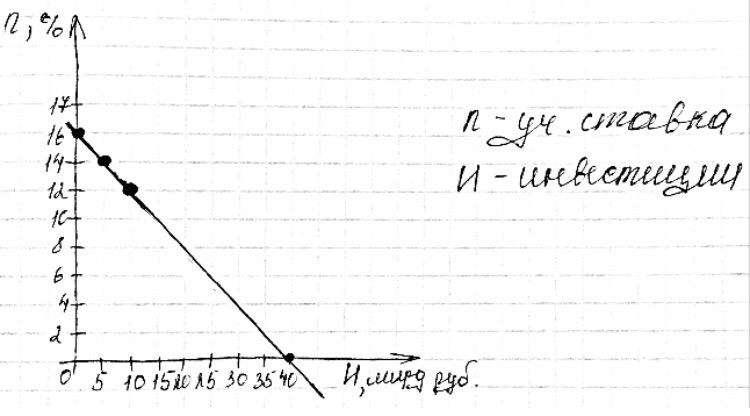 п, %
17
16
14
12
10
8
6
4
2
0 5 10 15 20 25 30 35 40 И, млрд руб.
п - уч. ставка
И - инвестиции